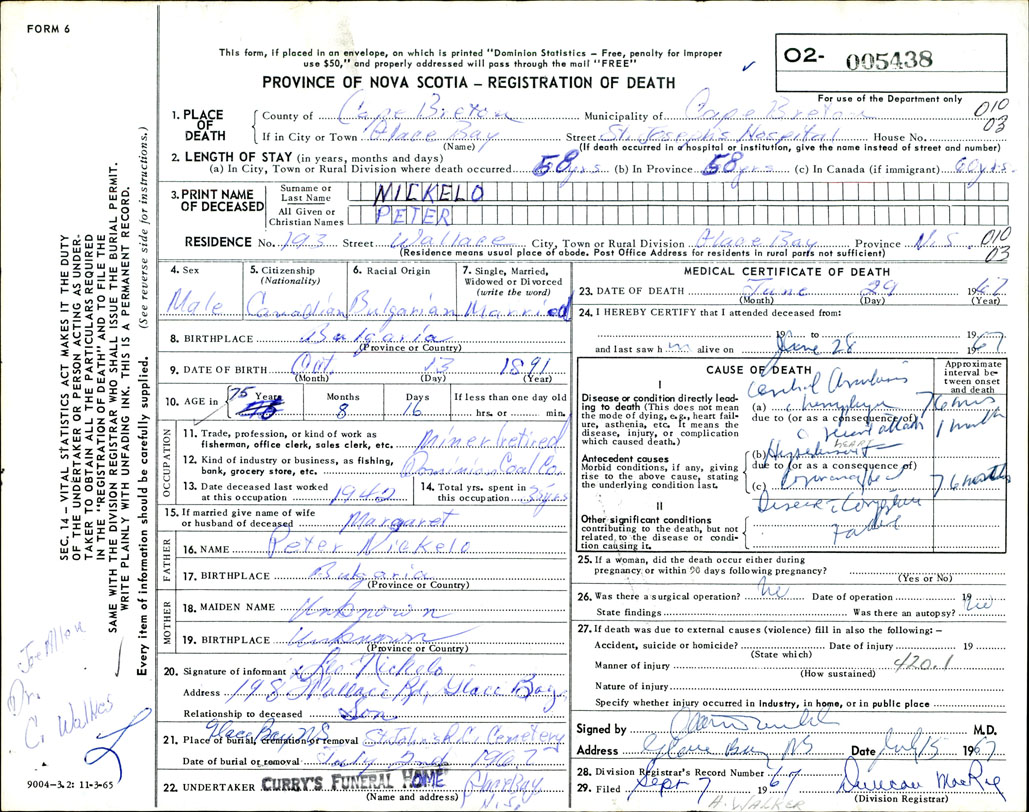 FORM 6
This form, if placed in an envelope, on which is printed "Dominion Statistics – Free, penalty for improper
use $50," and properly addressed will pass through the mail "FREE"
PROVINCE OF NOVA SCOTIA – REGISTRATION OF DEATH
O2- 005438
For use of the Department only
010
03
1. PLACE OF DEATH
County of Cape Breton Municipality of Cape Breton
If in City or Town Glace Bay Street St. Joseph's Hospital House No.
(Name) (If death occurred in a hospital or institution, give the name instead of street and number)
2. LENGTH OF STAY (in years, months and days)
(a) In City, Town or Rural Division where death occurred 58 yrs (b) In Province 58 yrs (c) In Canada (if immigrant) 60 yrs.
3. PRINT NAME OF DECEASED
Surname or Last Name NICKELO
All Given or Christian Names PETER
RESIDENCE No. 193 Street Wallace City, Town or Rural Division Glace Bay Province N.S. 010
03
(Residence means usual place of abode. Post Office Address for residents in rural parts not sufficient)
4. Sex Male
5. Citizenship (Nationality) Canadian
6. Racial Origin Bulgarian
7. Single, Married, Widowed or Divorced (write the word) Married
8. BIRTHPLACE Bulgaria
(Province or Country)
9. DATE OF BIRTH Oct 13 1891
(Month) (Day) (Year)
10. AGE in 75 Years Months 8 Days 16 If less than one day old
hrs. or min.
OCCUPATION
11. Trade, profession, or kind of work as
fisherman, office clerk, sales clerk, etc. Miner (retired
12. Kind of industry or business, as fishing,
bank, grocery store, etc. Dominion Coal Co.
13. Date deceased last worked
at this occupation 1942
14. Total yrs. spent in
this occupation yrs
15. If married give name of wife
or husband of deceased Margaret
FATHER
16. NAME Peter Nickelo
17. BIRTHPLACE Bulgaria
(Province or Country)
MOTHER
18. MAIDEN NAME Unknown
19. BIRTHPLACE Unknown
(Province or Country)
20. Signature of informant Nickelo
Address 198 Wallace Rd, Glace Bay
Relationship to deceased Son
21. Place of burial, cremation or removal Glace Bay N.S. St. John's R.C. Cemetery
Date of burial or removal July 1967
22. UNDERTAKER CURRY'S FUNERAL HOME Glace Bay
(Name and address) N.S.
MEDICAL CERTIFICATE OF DEATH
23. DATE OF DEATH June 29 1967
(Month) (Day) (Year)
24. I HEREBY CERTIFY that I attended deceased from:
19 to 19
and last saw h m alive on June 28 1967
CAUSE OF DEATH
Approximate interval between onset and death
I
Disease or condition directly leading
to death (This does not
mean the mode of dying, e.g., heart failure,
asthenia, etc. It means the
disease, injury, or complication
which caused death.)
(a)
due to (or as a consequence of)
heart attack 1 month
HEART
Antecedent causes
Morbid conditions, if any, giving
rise to the above cause, stating
the underlying condition last.
(b)
due to (or as a consequence of)
(c)
II
Other significant conditions
contributing to the death, but not
related to the disease or condition
causing it.
Disease
25. If a woman, did the death occur either during
pregnancy or within 90 days following pregnancy?
(Yes or No)
26. Was there a surgical operation? No Date of operation 19
State findings Was there an autopsy? No
27. If death was due to external causes (violence) fill in also the following: –
Accident, suicide or homicide? Date of injury 19
(State which)
Manner of injury 420.1
(How sustained)
Nature of injury
Specify whether injury occurred in industry, in home, or in public place
Signed by M.D.
Address Glace Bay NS Date July 5 1967
28. Division Registrar's Record Number
29. Filed Sept 7 67 Duncan MacRae
(Division Registrar)
H. WALKER
SEC. 14 – VITAL STATISTICS ACT MAKES IT THE DUTY
OF THE UNDERTAKER OR PERSON ACTING AS UNDERTAKER
TO OBTAIN ALL THE PARTICULARS REQUIRED
IN THE "REGISTRATION OF DEATH" AND TO FILE THE
SAME WITH THE DIVISION REGISTRAR WHO SHALL ISSUE THE BURIAL PERMIT.
WRITE PLAINLY WITH UNFADING INK. THIS IS A PERMANENT RECORD.
Every item of information should be carefully supplied. (See reverse side for instructions.)
Dr.
9004-3.2: 11-3-65